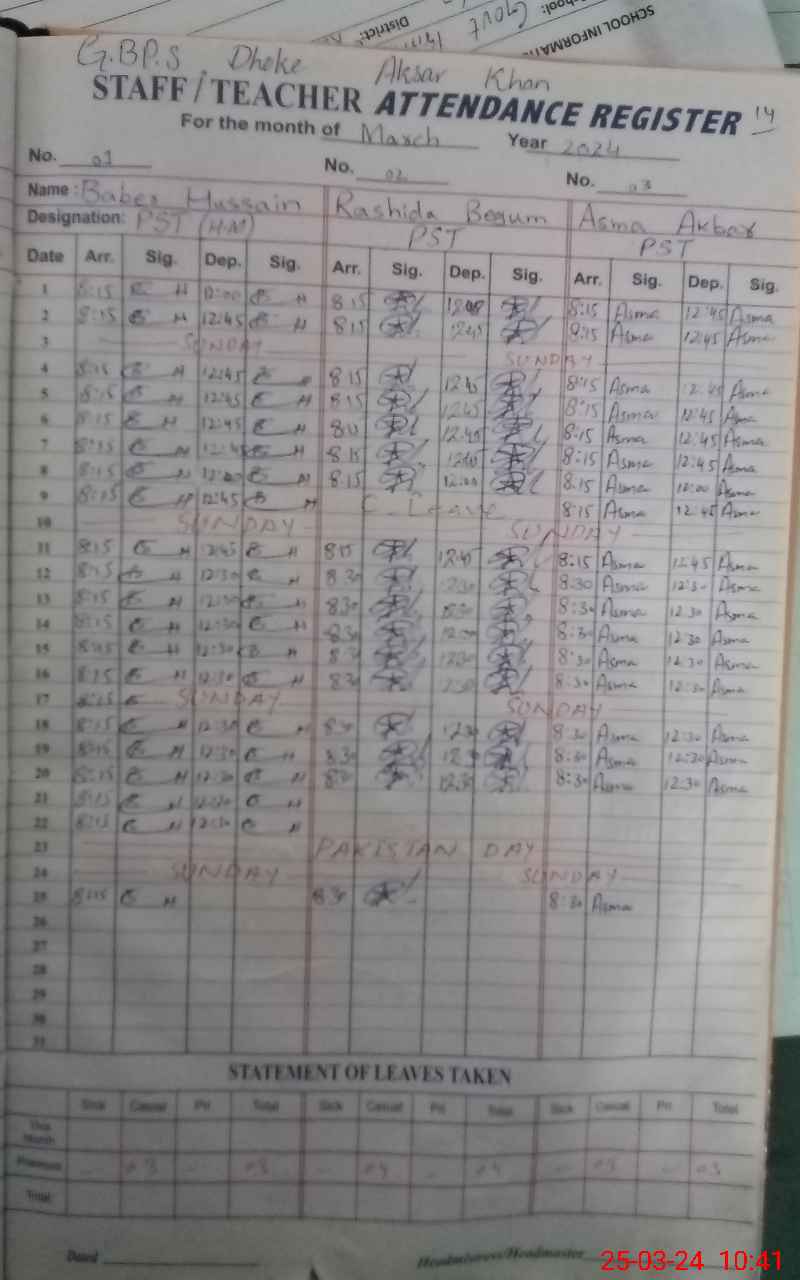 SCHOOL INFORMATI
District:
Govt
G.BP.S Dheke Aksar Khan
STAFF/TEACHER ATTENDANCE REGISTER 14
For the month of March Year 2024
No. 01 No. 02 No. 03
Name: Baber Hussain Rashida Begum Asma Akbar
Designation: PST (H.M) PST PST
Date Arr. Sig. Dep. Sig. Arr. Sig. Dep. Sig. Arr. Sig. Dep. Sig.
1 8:15 B H 12:00 B H 8 15 8:15 Asma 12:45 Asma
2 8:15 B H 12:45 B H 8 15 12:45 8:15 Asma 12:45 Asma
3 SUNDAY SUNDAY
4 8:15 B H 12:45 B H 8 15 12:45 8:15 Asma 12:45 Asma
5 8:15 B H 12:45 B H 8 15 12:45 8:15 Asma 12:45 Asma
6 8:15 B H 12:45 B H 12:45 8:15 Asma 12:45 Asma
7 8:15 B H 12:45 B H 8 15 8:15 Asma 12:45 Asma
8 8:15 B H 12:00 B H 8 15 12:00 8:15 Asma 12:00 Asma
9 8:15 B H 12:45 B H C. Leave 8:15 Asma 12:45 Asma
10 SUNDAY SUNDAY
11 8:15 B H 12:45 B H 8 15 12:45 8:15 Asma 12:45 Asma
12 8:15 B H 12:30 B H 8 30 12:30 8:30 Asma 12:30 Asma
13 8:15 B H 12:30 B H 8 30 8:30 Asma 12 30 Asma
14 8:15 B H 12:30 B H 8 30 12:30 8:30 Asma 12 30 Asma
15 8:15 B H 12:30 B H 8 3 12:30 8:30 Asma 12:30 Asma
16 8:15 B H 12:30 B H 8 3 12:30 8:30 Asma 12:30 Asma
17 8:15 B SUNDAY SUNDAY
18 8:15 B H 12:30 B H 8 30 12:30 8 30 Asma 12:30 Asma
19 8:15 B H 12:30 B H 8 30 12:30 8:30 Asma 12:30 Asma
20 8:15 B H 12:30 B H 8 30 12:30 8:30 Asma 12:30 Asma
21 8:15 B H 12:30 B H
22 8:15 B H 12:30 B H
23 PAKISTAN DAY
24 SUNDAY SUNDAY
25 8:15 B H 8 30 8:30 Asma
26
27
28
29
30
31
STATEMENT OF LEAVES TAKEN
Sick Casual Pri Total Sick Casual Pri Total Sick Casual Pri Total
This Month
Previous 03 03 04 04 03 03
Total
Dated Headmistress/Headmaster
25-03-24 10:41